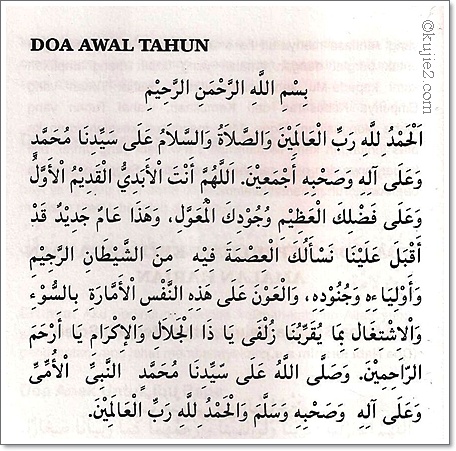 ©kujie2.com
DOA AWAL TAHUN
بِسْمِ اللَّهِ الرَّحْمَنِ الرَّحِيْمِ
اَلْحَمْدُ لِلَّهِ رَبِّ الْعَالَمِيْنَ وَالصَّلَاةُ وَالسَّلَامُ عَلَى سَيِّدِنَا مُحَمَّدٍ
وَعَلَى آلِهِ وَصَحْبِهِ أَجْمَعِيْنَ. اَللَّهُمَّ أَنْتَ الْأَبَدِيُّ الْقَدِيْمُ الْأَوَّلُ
وَعَلَى فَضْلِكَ الْعَظِيْمِ وُجُوْدِكَ الْمُعَوَّلِ، وَهَذَا عَامٌ جَدِيْدٌ قَدْ
أَقْبَلَ عَلَيْنَا نَسْأَلُكَ الْعِصْمَةَ فِيْهِ مِنَ الشَّيْطَانِ الرَّجِيْمِ
وَأَوْلِيَاءِهِ وَجُنُوْدِهِ، وَالْعَوْنَ عَلَى هَذِهِ النَّفْسِ الْأَمَّارَةِ بِالسُّوْءِ
وَالْاِشْتِغَالِ بِمَا يُقَرِّبُنَا زُلْفَى يَا ذَا الْجَلَالِ وَالْإِكْرَامِ يَا أَرْحَمَ
الرَّاحِمِيْنَ. وَصَلَّى اللَّهُ عَلَى سَيِّدِنَا مُحَمَّدٍ النَّبِيِّ الْأُمِّيِّ
وَعَلَى آلِهِ وَصَحْبِهِ وَسَلَّمَ وَالْحَمْدُ لِلَّهِ رَبِّ الْعَالَمِيْنَ.